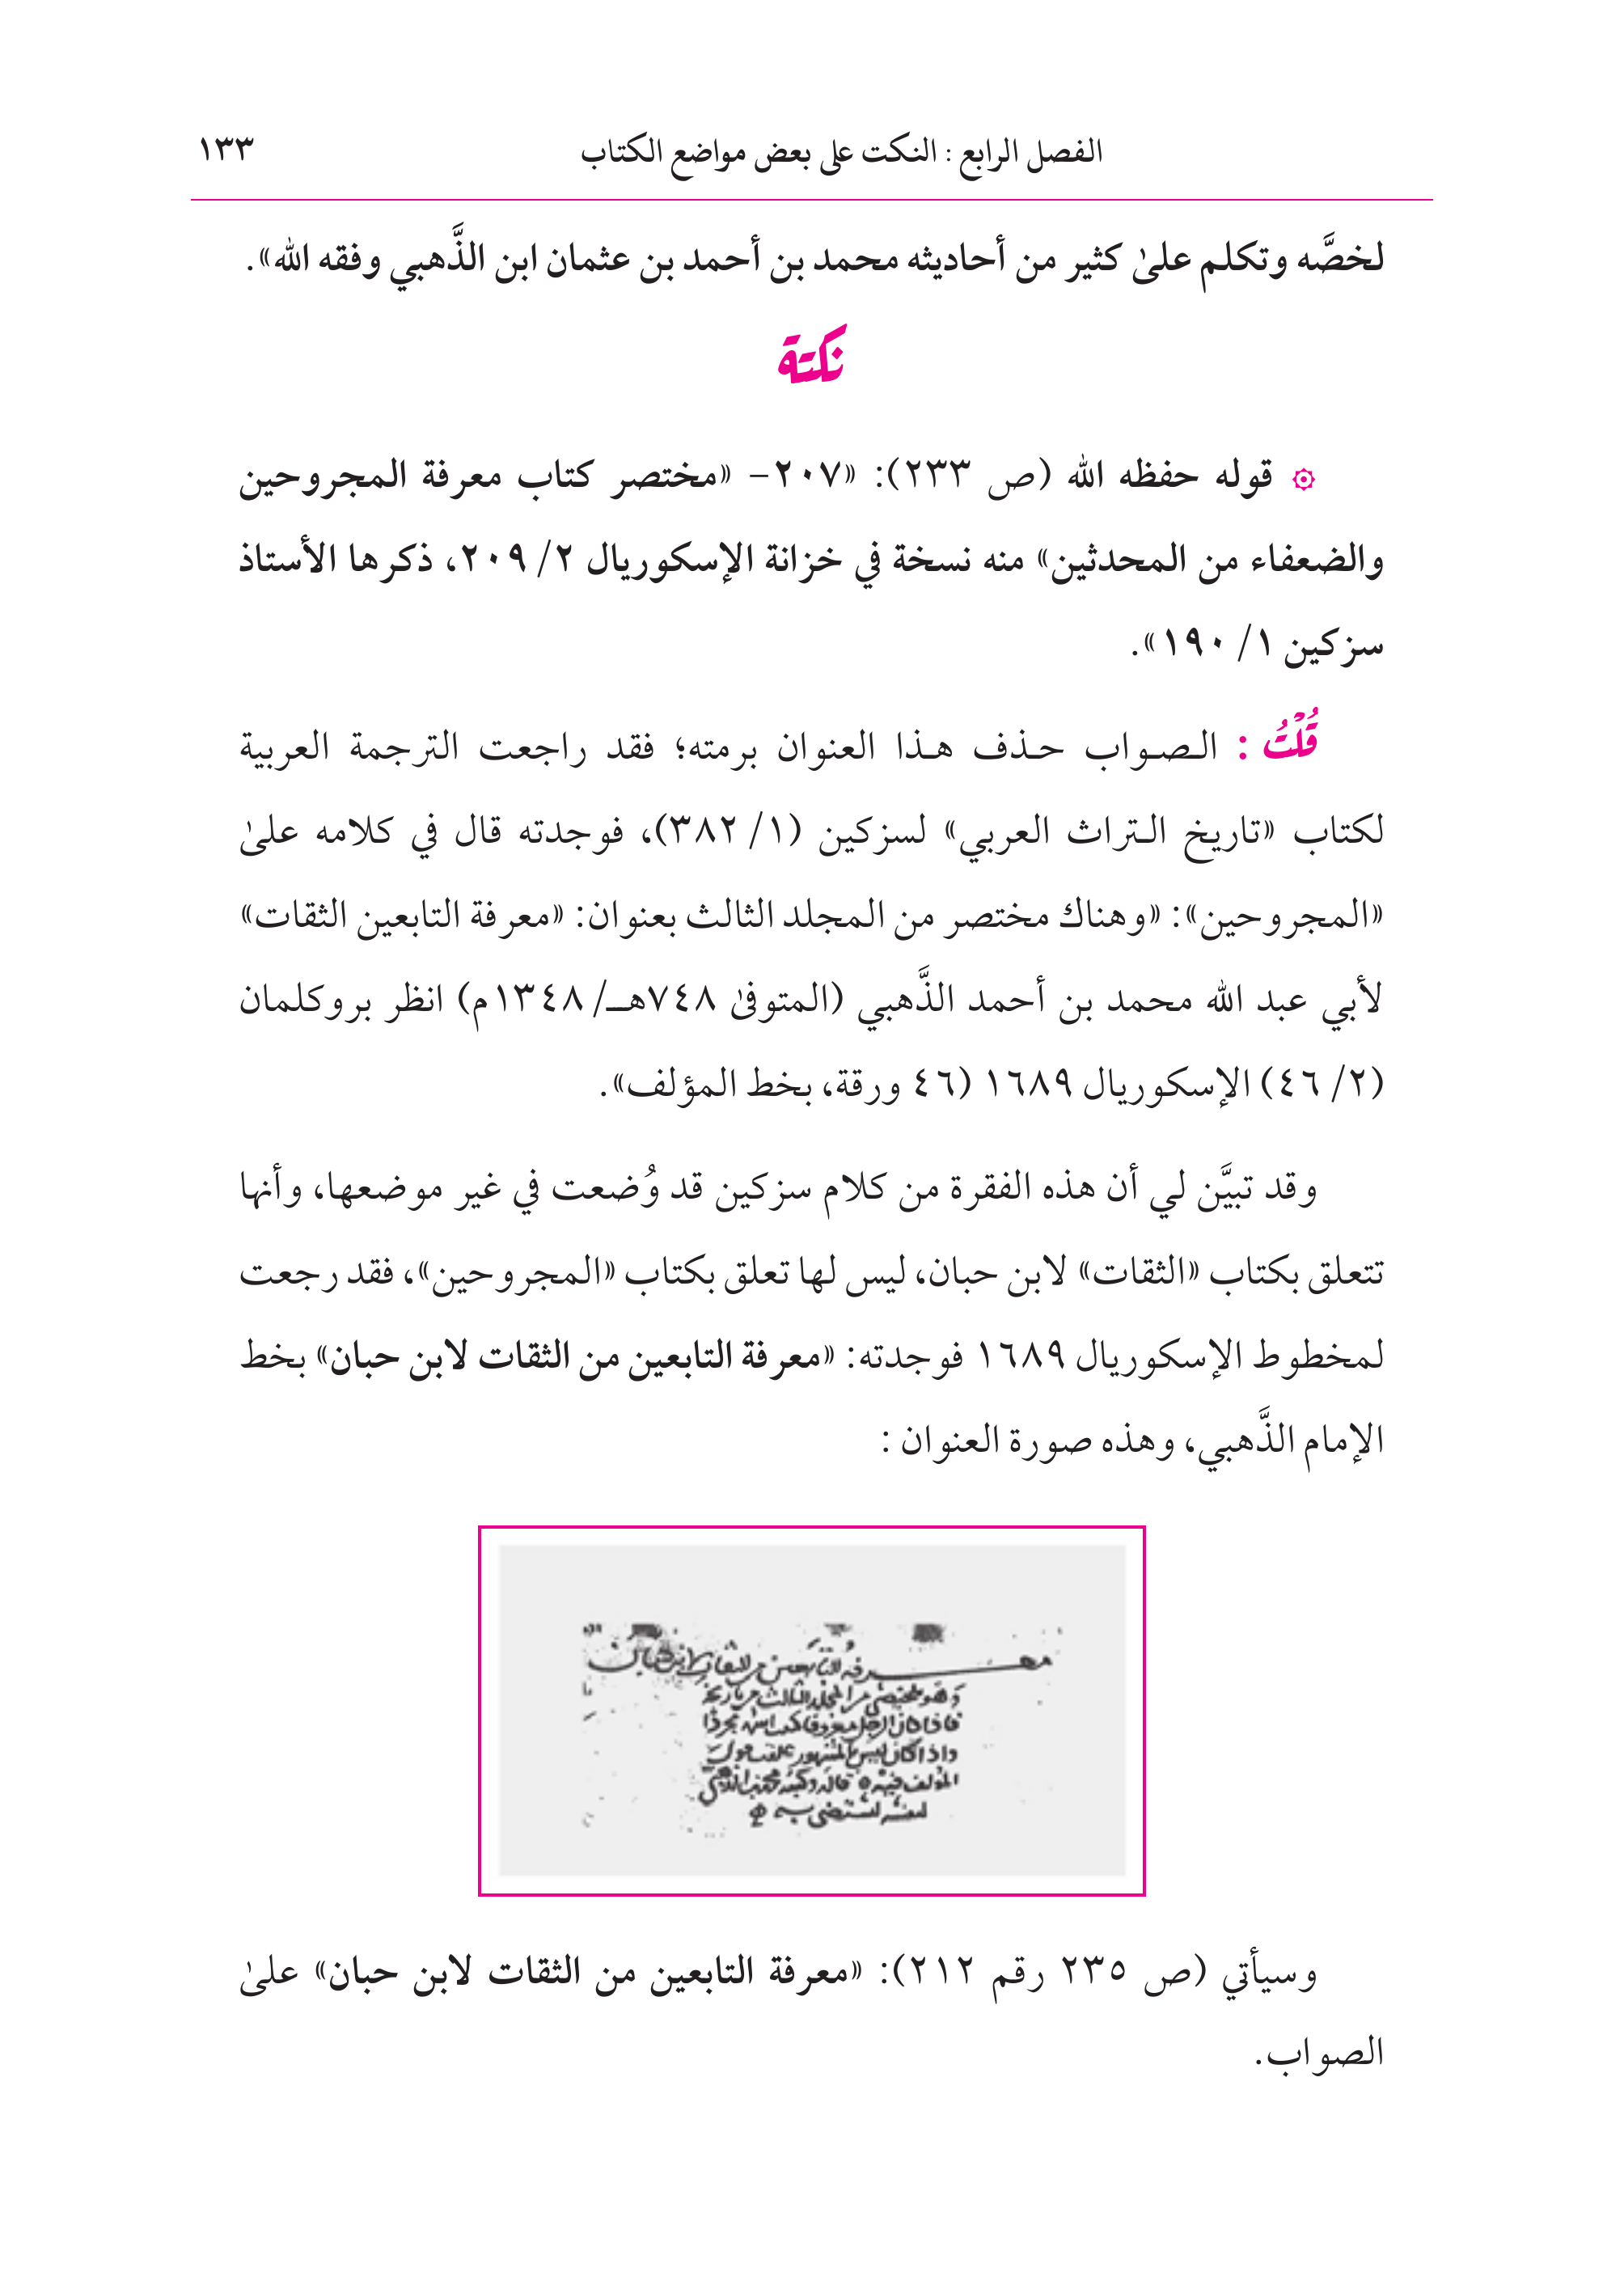 الفصل الرابع : النكت على بعض مواضع الكتاب ١٣٣
لخصَّه وتكلم علىٰ كثير من أحاديثه محمد بن أحمد بن عثمان ابن الذَّهبي وفقه الله».
نكتة
۞ قوله حفظه الله (ص ٢٣٣): «٢٠٧- «مختصر كتاب معرفة المجروحين
والضعفاء من المحدثين» منه نسخة في خزانة الإسكوريال ٢/ ٢٠٩، ذكرها الأستاذ
سزكين ١/ ١٩٠».
قُلْتُ : الـصـواب حـذف هـذا العنوان برمته؛ فقد راجعت الترجمة العربية
لكتاب «تاريخ التراث العربي» لسزكين (١/ ٣٨٢)، فوجدته قال في كلامه علىٰ
«المجروحين»: «وهناك مختصر من المجلد الثالث بعنوان: «معرفة التابعين الثقات»
لأبي عبد الله محمد بن أحمد الذَّهبي (المتوفىٰ ٧٤٨هـ/ ١٣٤٨م) انظر بروكلمان
(٢/ ٤٦) الإسكوريال ١٦٨٩ (٤٦ ورقة، بخط المؤلف».
وقد تبيَّن لي أن هذه الفقرة من كلام سزكين قد وُضعت في غير موضعها، وأنها
تتعلق بكتاب «الثقات» لابن حبان، ليس لها تعلق بكتاب «المجروحين»، فقد رجعت
لمخطوط الإسكوريال ١٦٨٩ فوجدته: «معرفة التابعين من الثقات لابن حبان» بخط
الإمام الذَّهبي، وهذه صورة العنوان :
معرفة التابعين من الثقات لابن حبان
وهو ملخص من المجلد الثالث من تاريخه
فاذا كان الرجل معروفا كتبت اسمه مجردا
واذا كان ليس بالمشهور علقت قول
المؤلف فيه قاله وكتبه محمد بن الذهبي
وسيأتي (ص ٢٣٥ رقم ٢١٢): «معرفة التابعين من الثقات لابن حبان» علىٰ
الصواب.